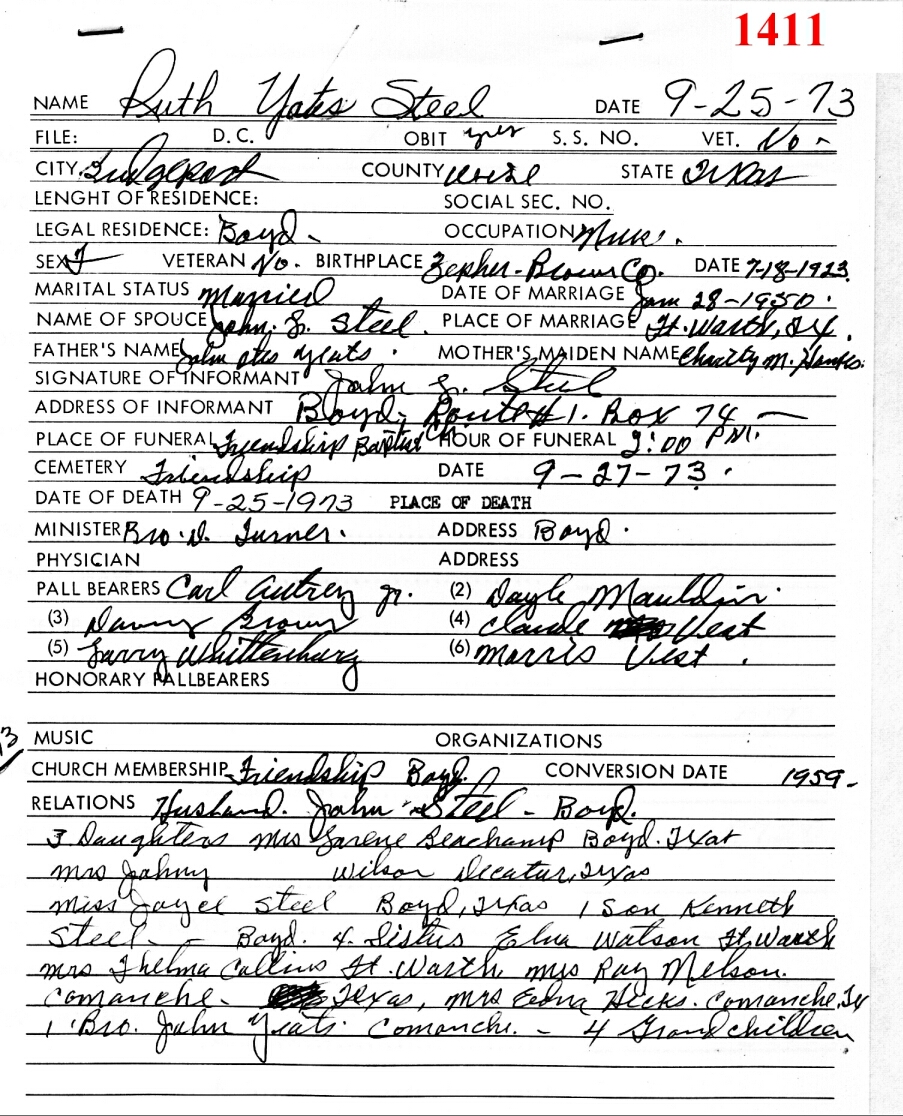 1411
NAME Ruth Yates Steel DATE 9-25-73
FILE: D.C. OBIT yes S.S. NO. VET. No -
CITY Bridgeport COUNTY Wise STATE Texas
LENGHT OF RESIDENCE: SOCIAL SEC. NO.
LEGAL RESIDENCE: Boyd - OCCUPATION Nurse.
SEX F VETERAN No. BIRTHPLACE Zepher - Brown Co. DATE 7-18-1923
MARITAL STATUS Married DATE OF MARRIAGE Jan 28-1950.
NAME OF SPOUSE John. L. Steel. PLACE OF MARRIAGE Ft. Warth, Tx.
FATHER'S NAME John Otis Yeats. MOTHER'S MAIDEN NAME Charity M.
SIGNATURE OF INFORMANT John L. Steel
ADDRESS OF INFORMANT Boyd, Route # 1. Box 74 -
PLACE OF FUNERAL Friendship Baptist Ch HOUR OF FUNERAL 2:00 PM.
CEMETERY Friendship DATE 9-27-73.
DATE OF DEATH 9-25-1973 PLACE OF DEATH
MINISTER Bro. D. Turner. ADDRESS Boyd.
PHYSICIAN ADDRESS
PALL BEARERS Carl Autrey Jr. (2) Dayle Mauldin.
(3) Danny Brown (4) Claude Vest
(5) Larry Whittenburg (6) Morris Vest.
HONORARY PALLBEARERS
MUSIC ORGANIZATIONS
CHURCH MEMBERSHIP Friendship Boyd. CONVERSION DATE 1959-
RELATIONS Husband. John Steel - Boyd.
3 Daughters Mrs Larene Beachamp Boyd. Texas
Mrs Johny Wilson Decatur, Texas
Miss Joyce Steel Boyd, Texas 1 Son Kenneth
Steel - - Boyd. 4. Sisters Elna Watson Ft. Warth
Mrs Thelma Collins Ft. Warth, Mrs Ray Nelson.
Comanche - Texas, Mrs Edna Hicks. Comanche, Tx
1 Bro. John Yeats. Comanche. - 4 Grandchildren